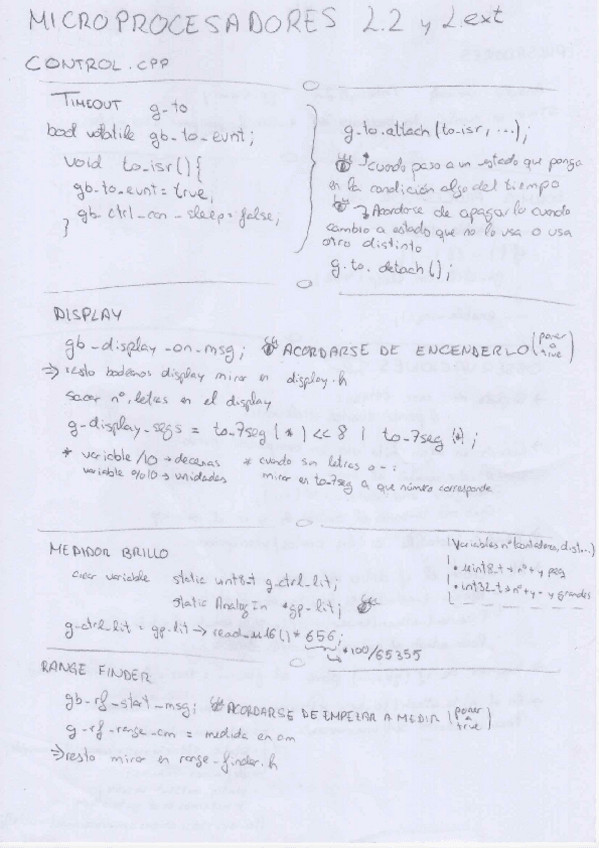 MICROPROCESADORES 2.2 y 2.ext
CONTROL.CPP
TIMEOUT g_to
bool volatile gb_to_evnt;
void to_isr(){
gb_to_evnt = true;
gb_ctrl_can_sleep = false;
}
g_to.attach(to_isr, ...);
↑ cuando paso a un estado que ponga
en la condición algo del tiempo
→ Acordarse de apagarlo cuando
cambio a estado que no lo usa o usa
otro distinto
g_to.detach();
DISPLAY
gb_display_on_msg; ACORDARSE DE ENCENDERLO (poner a true)
⇒ resto booleanos display mirar en display.h
sacar nº, letras en el display
g_display_segs = to_7seg(*) << 8 | to_7seg(*);
* variable /10 → decenas
variable %10 → unidades
* cuando son letras o - :
mirar en to_7seg a que número corresponde
MEDIDOR BRILLO
crear variable static uint8_t g_ctrl_lit;
static AnalogIn *gp_lit;
g_ctrl_lit = gp_lit → read_u16()* 656;
→ *100/65355
Variables nº (contadores, dist...)
• uint8_t → nº + y peq
• int32_t → nº + y - y grandes
RANGE FINDER
gb_rf_start_msg; ACORDARSE DE EMPEZAR A MEDIR (poner a true)
g_rf_range_cm = medida en cm
⇒ resto mirar en range_finder.h